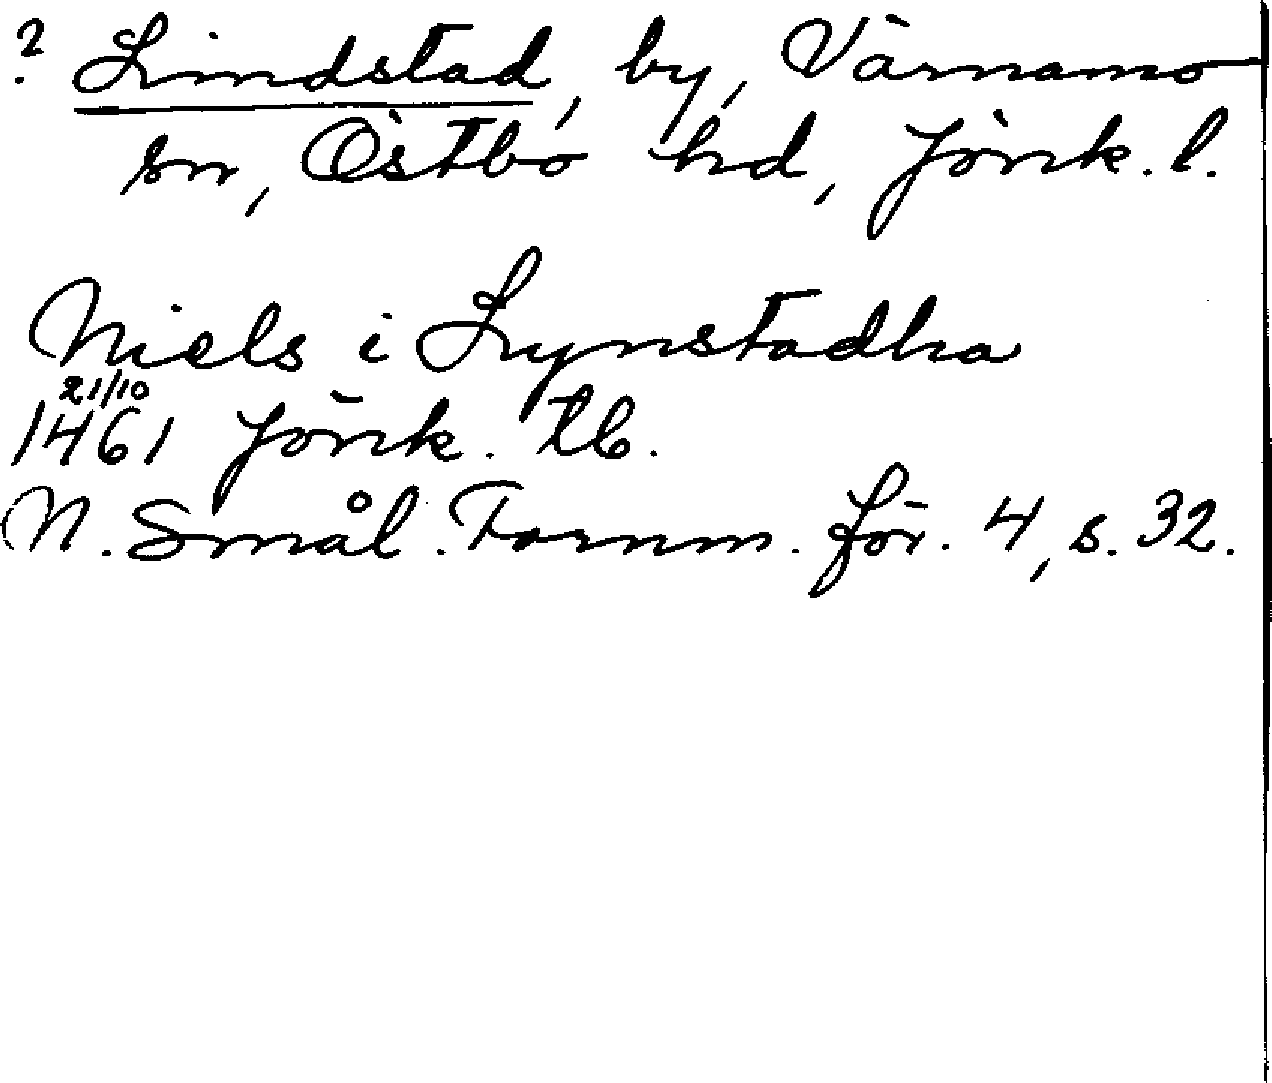 ? Lindstad, by, Värnamo
sn, Östbo hd, Jönk. l.
Niels i Lynstadha
21/10
1461 Jönk. tb.
N. Smål. Fornm. för. 4, s. 32.